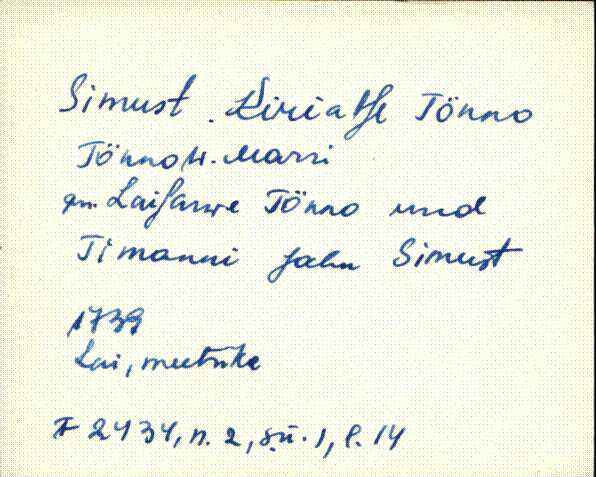 Simust. Kiriatse Tönno
Tönno w. Marri
gm. Laisarwe Tönno und
Timanni Jahn Simust
1739
Lai, meetrika
F 2434, n. 2, sü. 1, l. 14